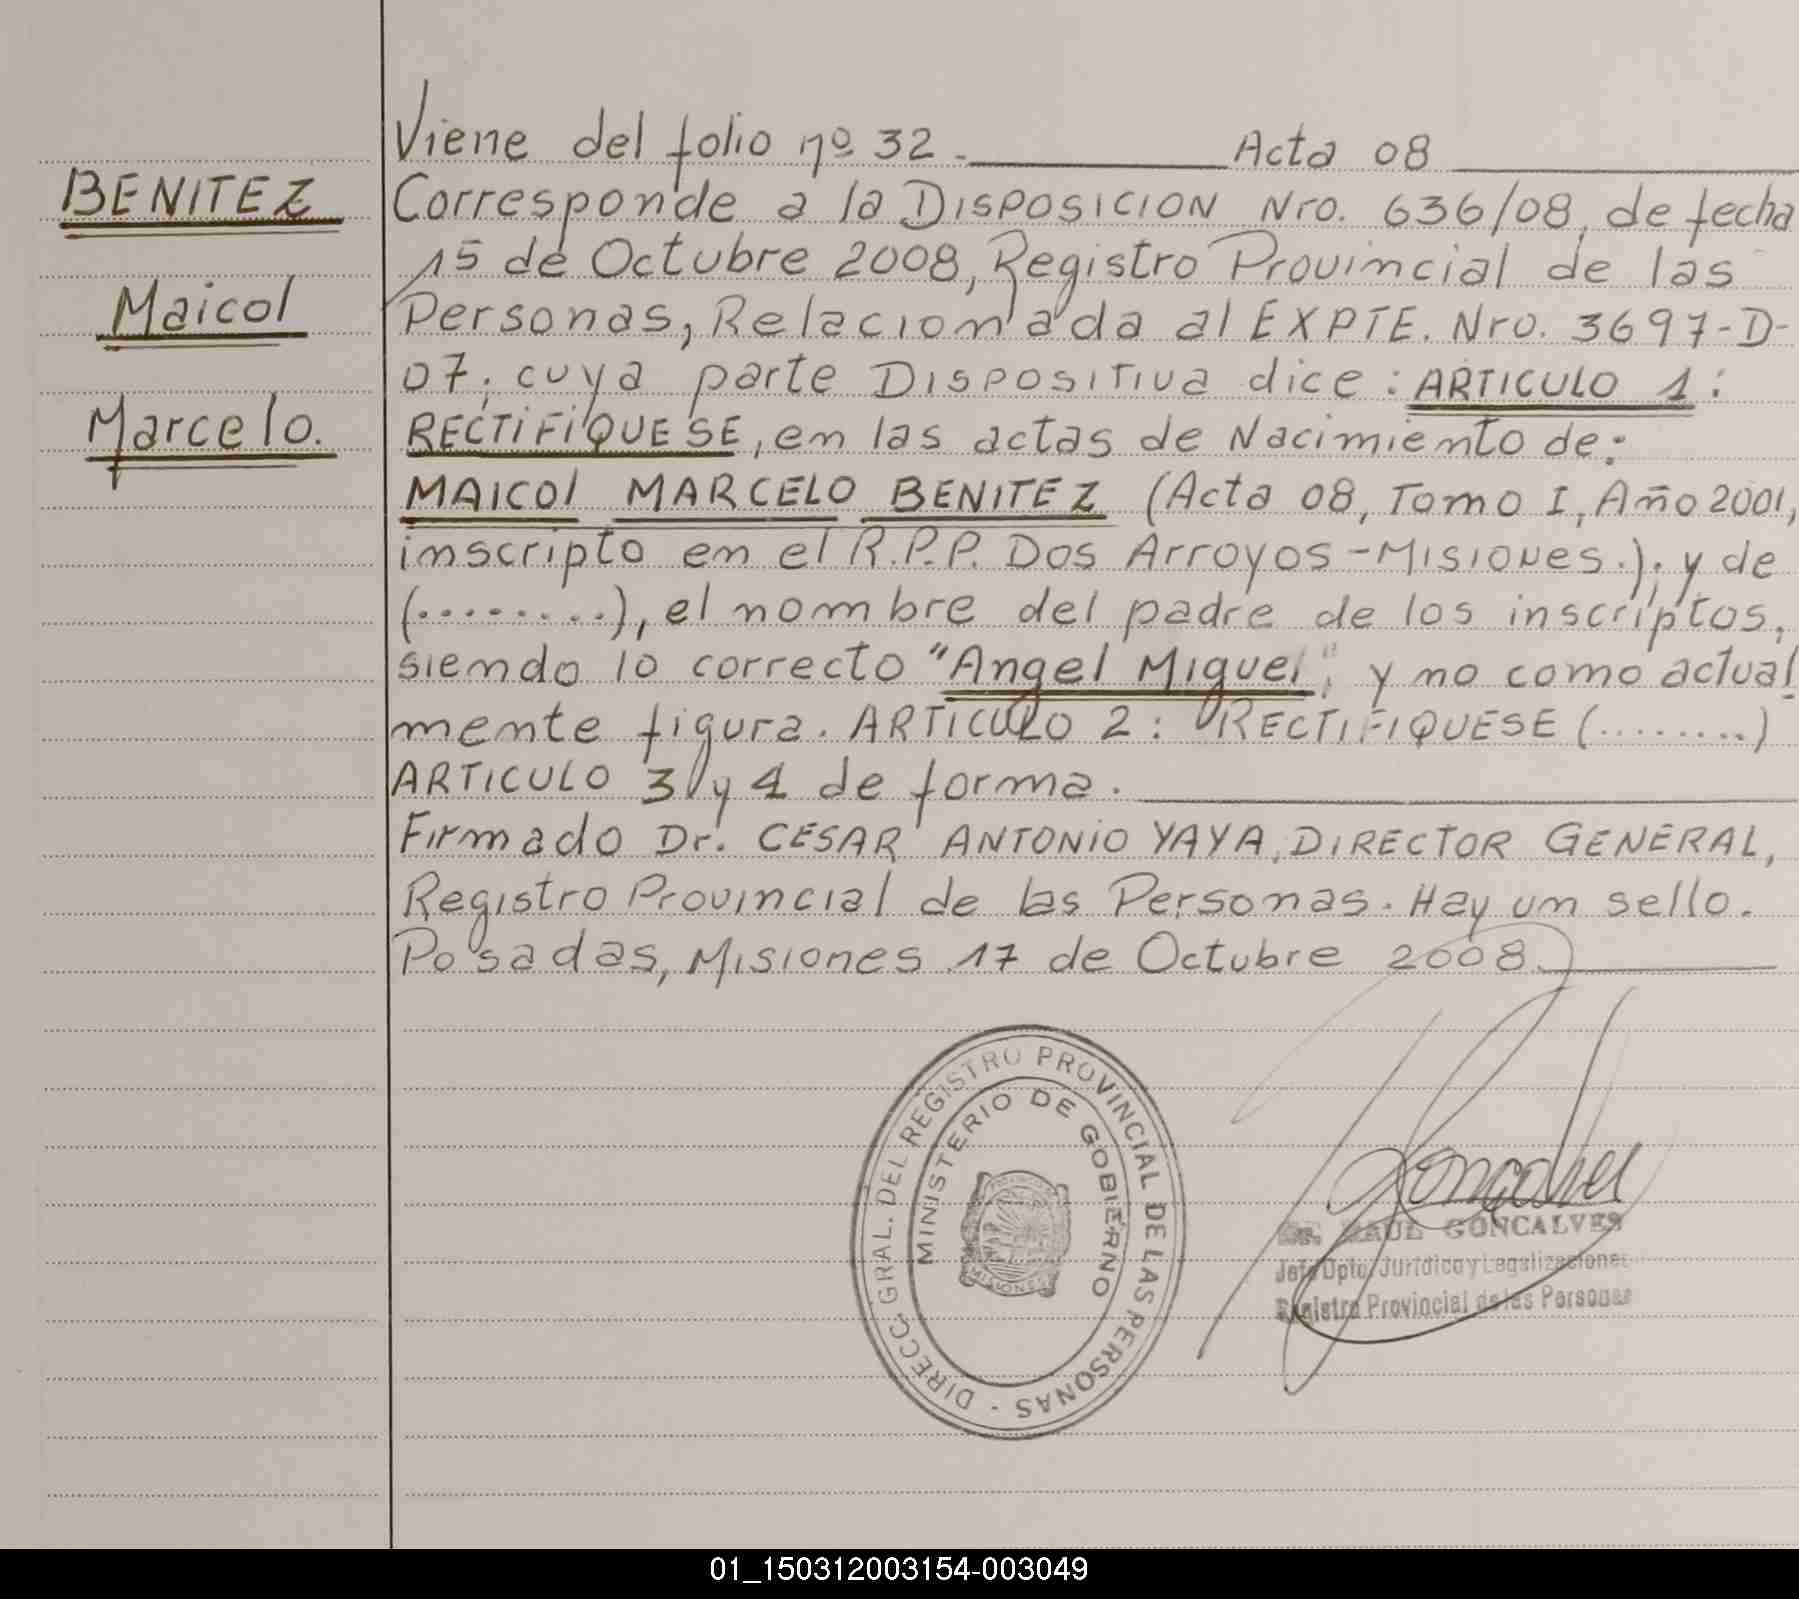 BENITEZ
Maicol
Marcelo.
Viene del folio nº 32. Acta 08
Corresponde a la DISPOSICION Nro. 636/08, de fecha
15 de Octubre 2008, Registro Provincial de las
Personas, Relacionada al EXPTE. Nro. 3697-D-
07; cuya parte DISPOSITIVA dice: ARTICULO 1:
RECTIFIQUESE, en las actas de Nacimiento de:
MAICOl MARCELO BENITEZ (Acta 08, Tomo I, Año 2001,
inscripto en el R.P.P. DOS ARROYOS-MISIONES.); y de
(.........), el nombre del padre de los inscriptos,
siendo lo correcto "Angel Miguel", y no como actual
mente figura. ARTICULO 2: RECTIFIQUESE (........)
ARTICULO 3 y 4 de forma.
Firmado Dr. CESAR ANTONIO YAYA, DIRECTOR GENERAL,
Registro Provincial de las Personas. Hay un sello.
Posadas, Misiones 17 de Octubre 2008.
DIRECC. GRAL. DEL REGISTRO PROVINCIAL DE LAS PERSONAS -
MINISTERIO DE GOBIERNO
MISIONES
Dr. RAUL GONCALVES
Jefe Dpto. Jurídico y Legalizaciones
Registro Provincial de las Personas
01_150312003154-003049